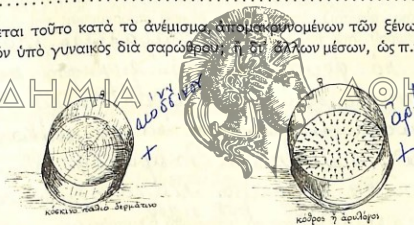 εται τοῦτο κατὰ τὸ ἀνέμισμα, ἀπομακρυνομένων τῶν ξένω
όν ὑπὸ γυναικὸς διὰ σαρώθρου; ἢ δι' ἄλλων μέσων, ὡς π.
ΔΗΜΙΑ ΑΘΗ
κόσκινο παλιό δερμάτινο
κόθρος ἢ ἀριλόγος